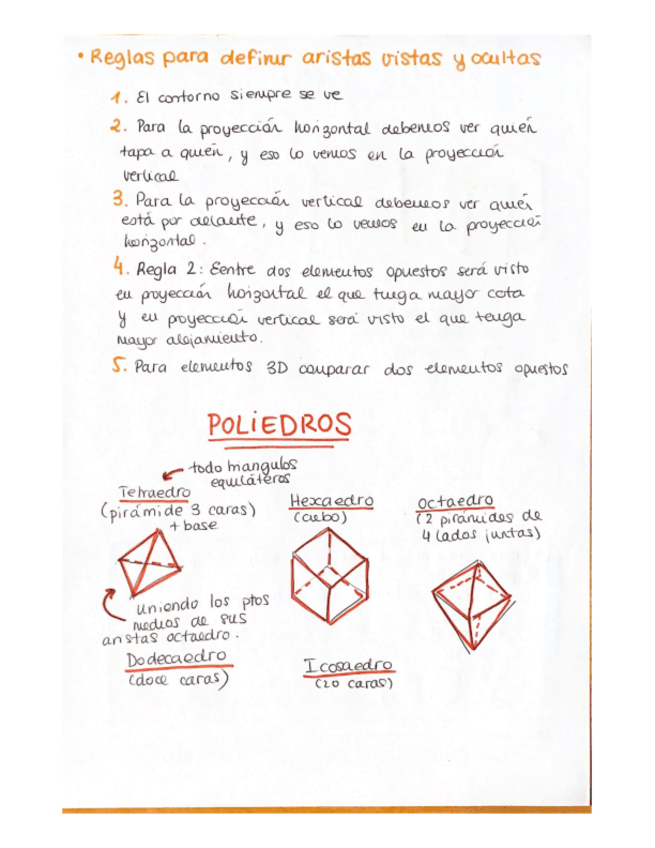 • Reglas para definir aristas vistas y ocultas
1. El contorno siempre se ve
2. Para la proyección horizontal debemos ver quién
tapa a quién, y eso lo vemos en la proyección
vertical
3. Para la proyección vertical debemos ver quién
está por delante, y eso lo vemos en la proyección
horizontal.
4. Regla 2: Eentre dos elementos opuestos será visto
en proyección horizontal el que tenga mayor cota
y en proyección vertical será visto el que tenga
mayor alejamiento.
5. Para elementos 3D comparar dos elementos opuestos
POLIEDROS
todo triangulos
equiláteros
Tetraedro
(pirámide 3 caras)
+ base
Hexaedro
(cubo)
Octaedro
(2 pirámides de
4 lados juntas)
uniendo los ptos
medios de sus
aristas octaedro.
Dodecaedro
(doce caras)
Icosaedro
(20 caras)